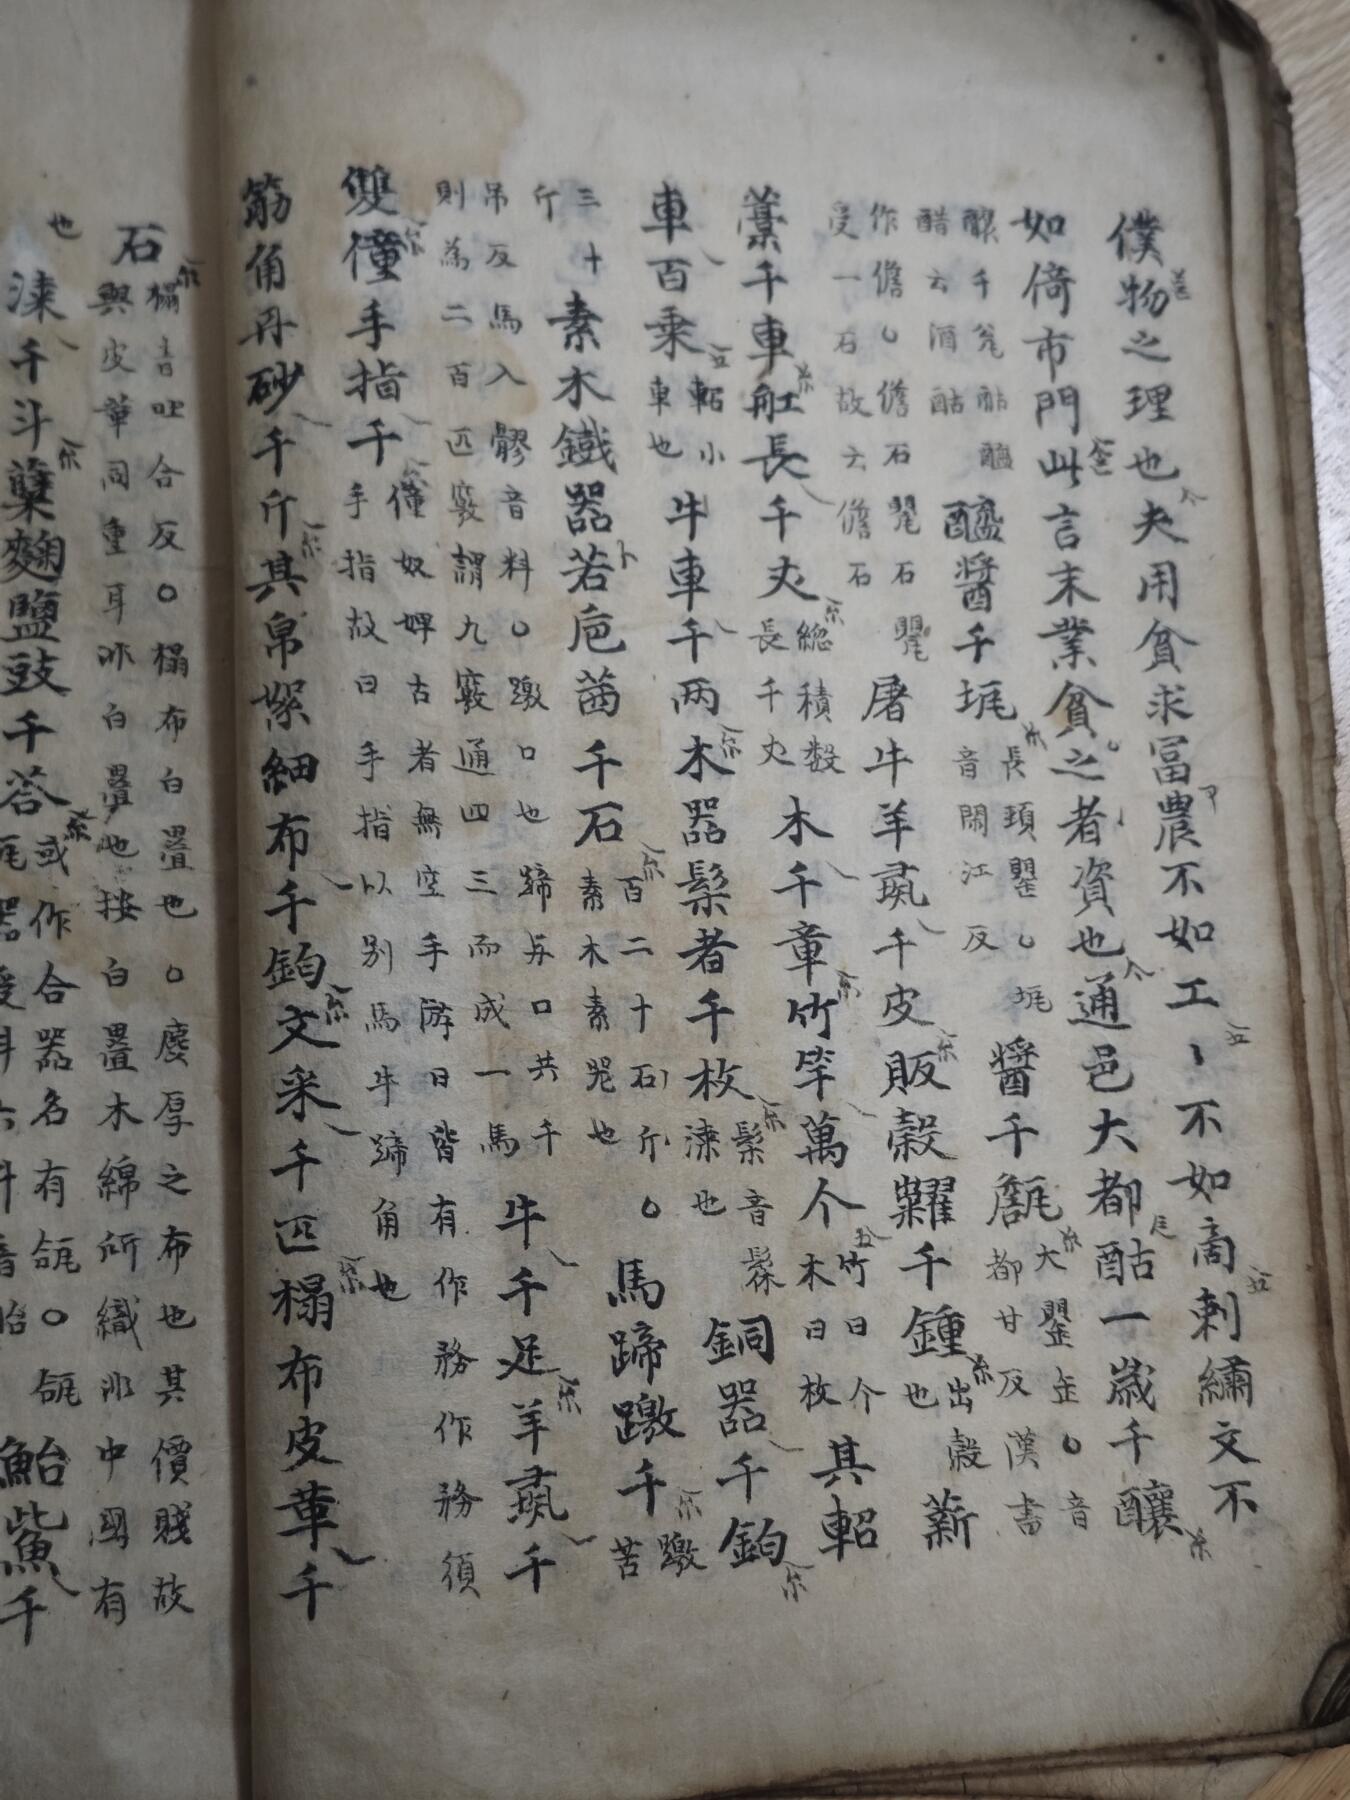 僕物之理也夫用貧求冨農不如工〻不如商刺繡文不
如倚市門此言末業貧之者資也通邑大都酤一歲千釀
醸千瓮酤醯
醋云酒酤
醯醬千㧌
長頚罌㧌
音閧江反
醬千甔
大罌缶音
都甘反漢書
作儋儋石甖石甖
受一石故云儋石
屠牛羊彘千皮販糓糶千鍾
出糓
也
薪
藁千車舡長千丈
總積数
長千丈
木千章竹竿萬个
竹曰个
木曰枚
其軺
車百乘
軺小
車也
牛車千两木器髹者千枚
髹音髹
漆也
銅器千鈞
三十
斤
素木鐵器若巵茜千石
百二十石斤
素木素噐也
馬蹄躈千
躈苦
吊反馬入髎音料躈口也蹄与口共千
則為二百匹竅謂九竅通四三而成一馬
牛千足羊彘千
雙僮手指千
僮奴婢古者無空手游日皆有作務作務須
手指故曰手指以别馬牛蹄角也
筋角丹砂千斤其帛絮細布千鈞文采千匹榻布皮革千
石
榻音吐合反榻布白疊也麁厚之布也其價賤故
與皮革同重耳非白疊也按白疊木綿所織非中國有
也
漆千斗糵麴鹽豉千荅
或作合器名有瓵瓵
鮐鮆千